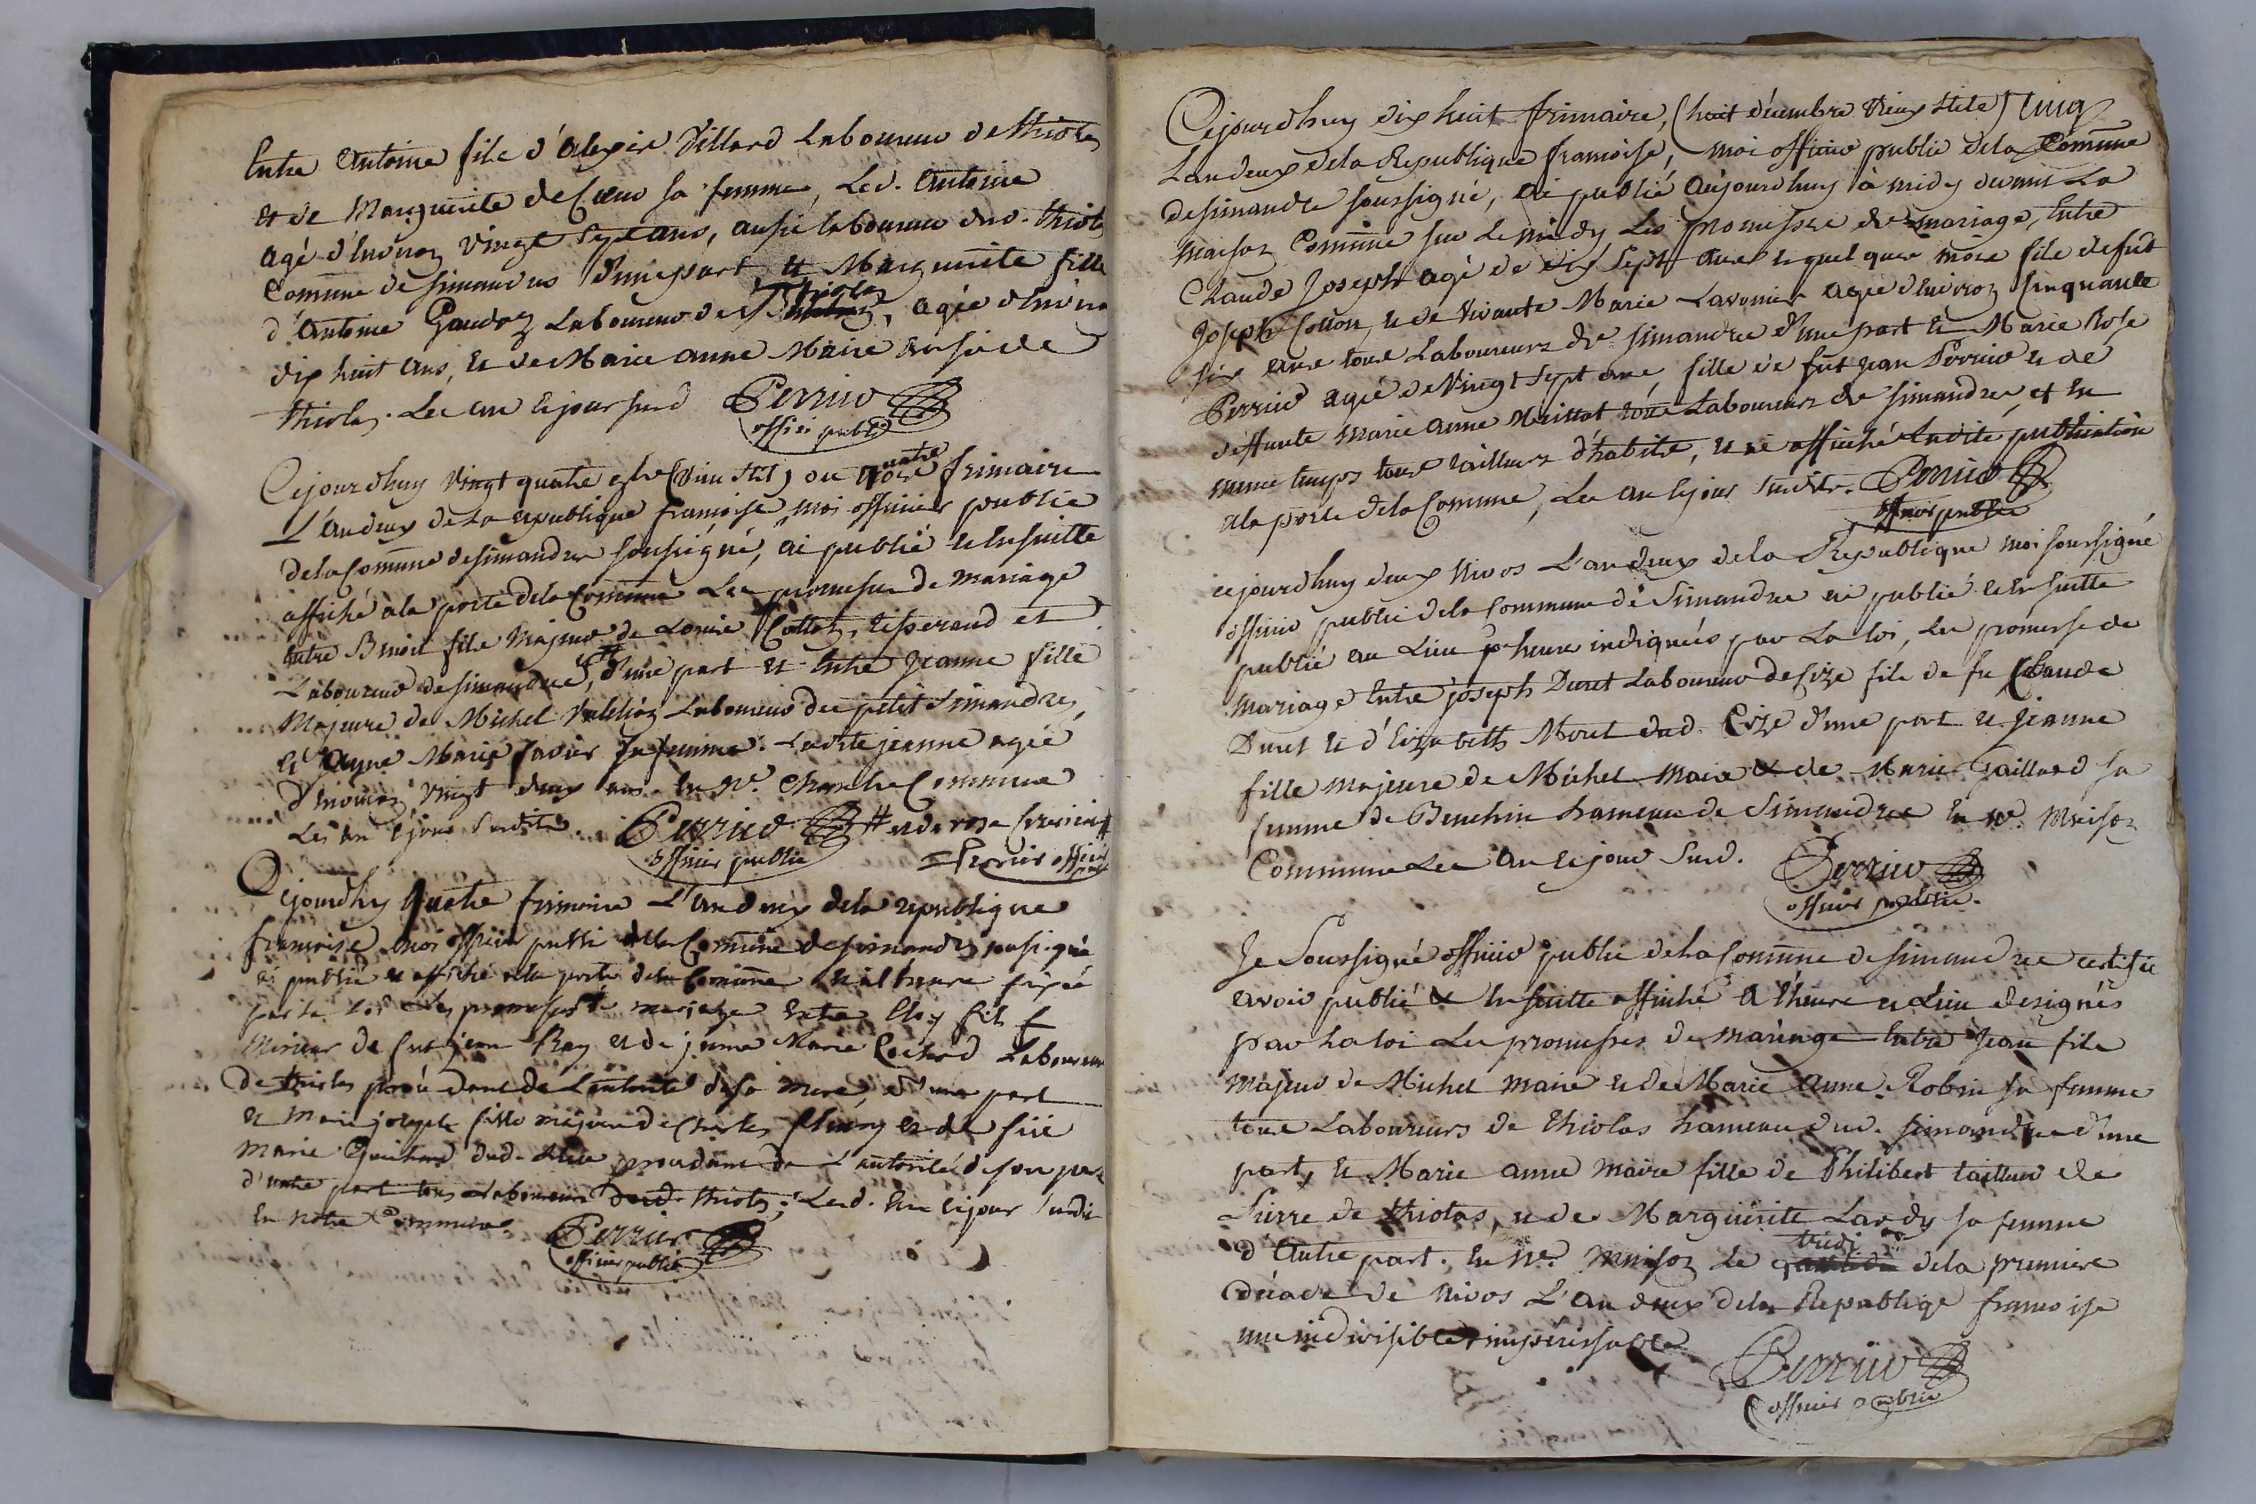 Entre Antoine fils d'Alexis Villard Laboureur de thiolas
et de Marguerite de Coeur sa femme, Led. Antoine
agé d'Environ vingt sept ans, aussi laboureur dud. thiolas
Comune de simandres d'une part, et Marguerite fille
d'Antoine Gaudoz Laboureur de thiolas, agée d'Environ
dix huit ans, et de Marie anne Maire aussi de
thiolas. Les an et jour susd Perrier
officier public
Cejourdhuy vingt quatre (vieu stil) ou quatre frimaire
L'an deux de La republique francoise, moi officier public
de la Comune de simandres soussigné, ai publié et Ensuitte
affiché a la porte de la Comune Les promesses de Mariage
entre Benoit fils Majeur de Louis Cottoz, tisserand et
Laboureur de simandres, # d'une part et Entre Jeanne fille
Majeure de Michel Laboureur du petit Simandres,
et Marie Savier sa femme. Ladite jeanne agée
d'Environ vingt deux ans. En Ne. Chambre Commune
Les an et jour susdits. Perrier # et de rose #
officier public Perrier officier
Cejourdhy quatre frimaire L'an deux de la republique
francoise moi officier publi de la Comune de simandres sousigné
ai publié et affiché a la porte de la Comune et a l'heure fixée
par la Loi Les promesses de mariage Entre fils
Mineur de fut jean Ray et de jeanne Marie Cochard Laboureur
de thiolas procédant de l'autorité de sa mere, d'une part
et Marie josephe fille mineure de Charles et de füe
Marie Guichard dud. Lieu procédant de L'autorité de son pere
d'autre part tous Laboureurs dud. thiolas; Lesd. An et jour susdit
En notre Commune. Perrier
officier public
Cejourdhuy dix huit frimaire, (huit décembre vieux stile)
L'an deux de la Republique francoise, moi officier public de la Comune
de simandre soussigné, ai publié aujourdhuy à midy devant La
maison Comune sur Le midy Les promesses de mariage, Entre
Claude Joseph agé de dix sept ans et quelques mois fils de fut
Joseph Cotton, et de vivante Marie Lavenier agée d'Environ Cinquante
six ans tous Laboureurs de simandre d'une part et Marie Rose
Perrier agée de vingt sept ans, fille de fut jean Perrier et de
deffunte Marie anne tous Laboureurs de simandres, et En
meme temps tous tailleurs d'habits, et ai affiché Ladite publication
a la porte de la Comune, Les an et jour susdits. Perrier
officier public
cejourdhuy deux Nivos L'an deux de la Republique moi soussigné
officier public de la Commune de Simandre ai publié et Ensuitte
publié au Lieu et heure indiqués par La Loi, Les promesse de
mariage Entre joseph Duret Laboureur de Cize fils de fu Claude
Duret et d'Elizabeth Moret dud. Cize d'une part et Jeanne
fille majeure de Michel Maire et de Marie Gaillard sa
femme de Benchin hameau de Simandres En Ne. Maison
Commune Les an et jour susd. Perrier
officier public.
Je Soussigné officier public de la Comune de simandres certifie
avoir publié et Ensuitte affiché a l'heure et Lieu designés
par La loi Les promesses de mariage Entre Jean fils
majeur de Michel Maire et de Marie Anne Robin sa femme
tous Laboureurs de thiolas hameau dud. simandres d'une
part, et Marie anne Maire fille de Philibert tailleur de
Pierre de thiolas, et de Marguerite Lardy sa femme
d'Autre part. En Ne. Maison Le tridi de la premiere
décade de Nivos L'an deux de la Republiqe francoise
une indivisible et impérissable
Perrier
officier public